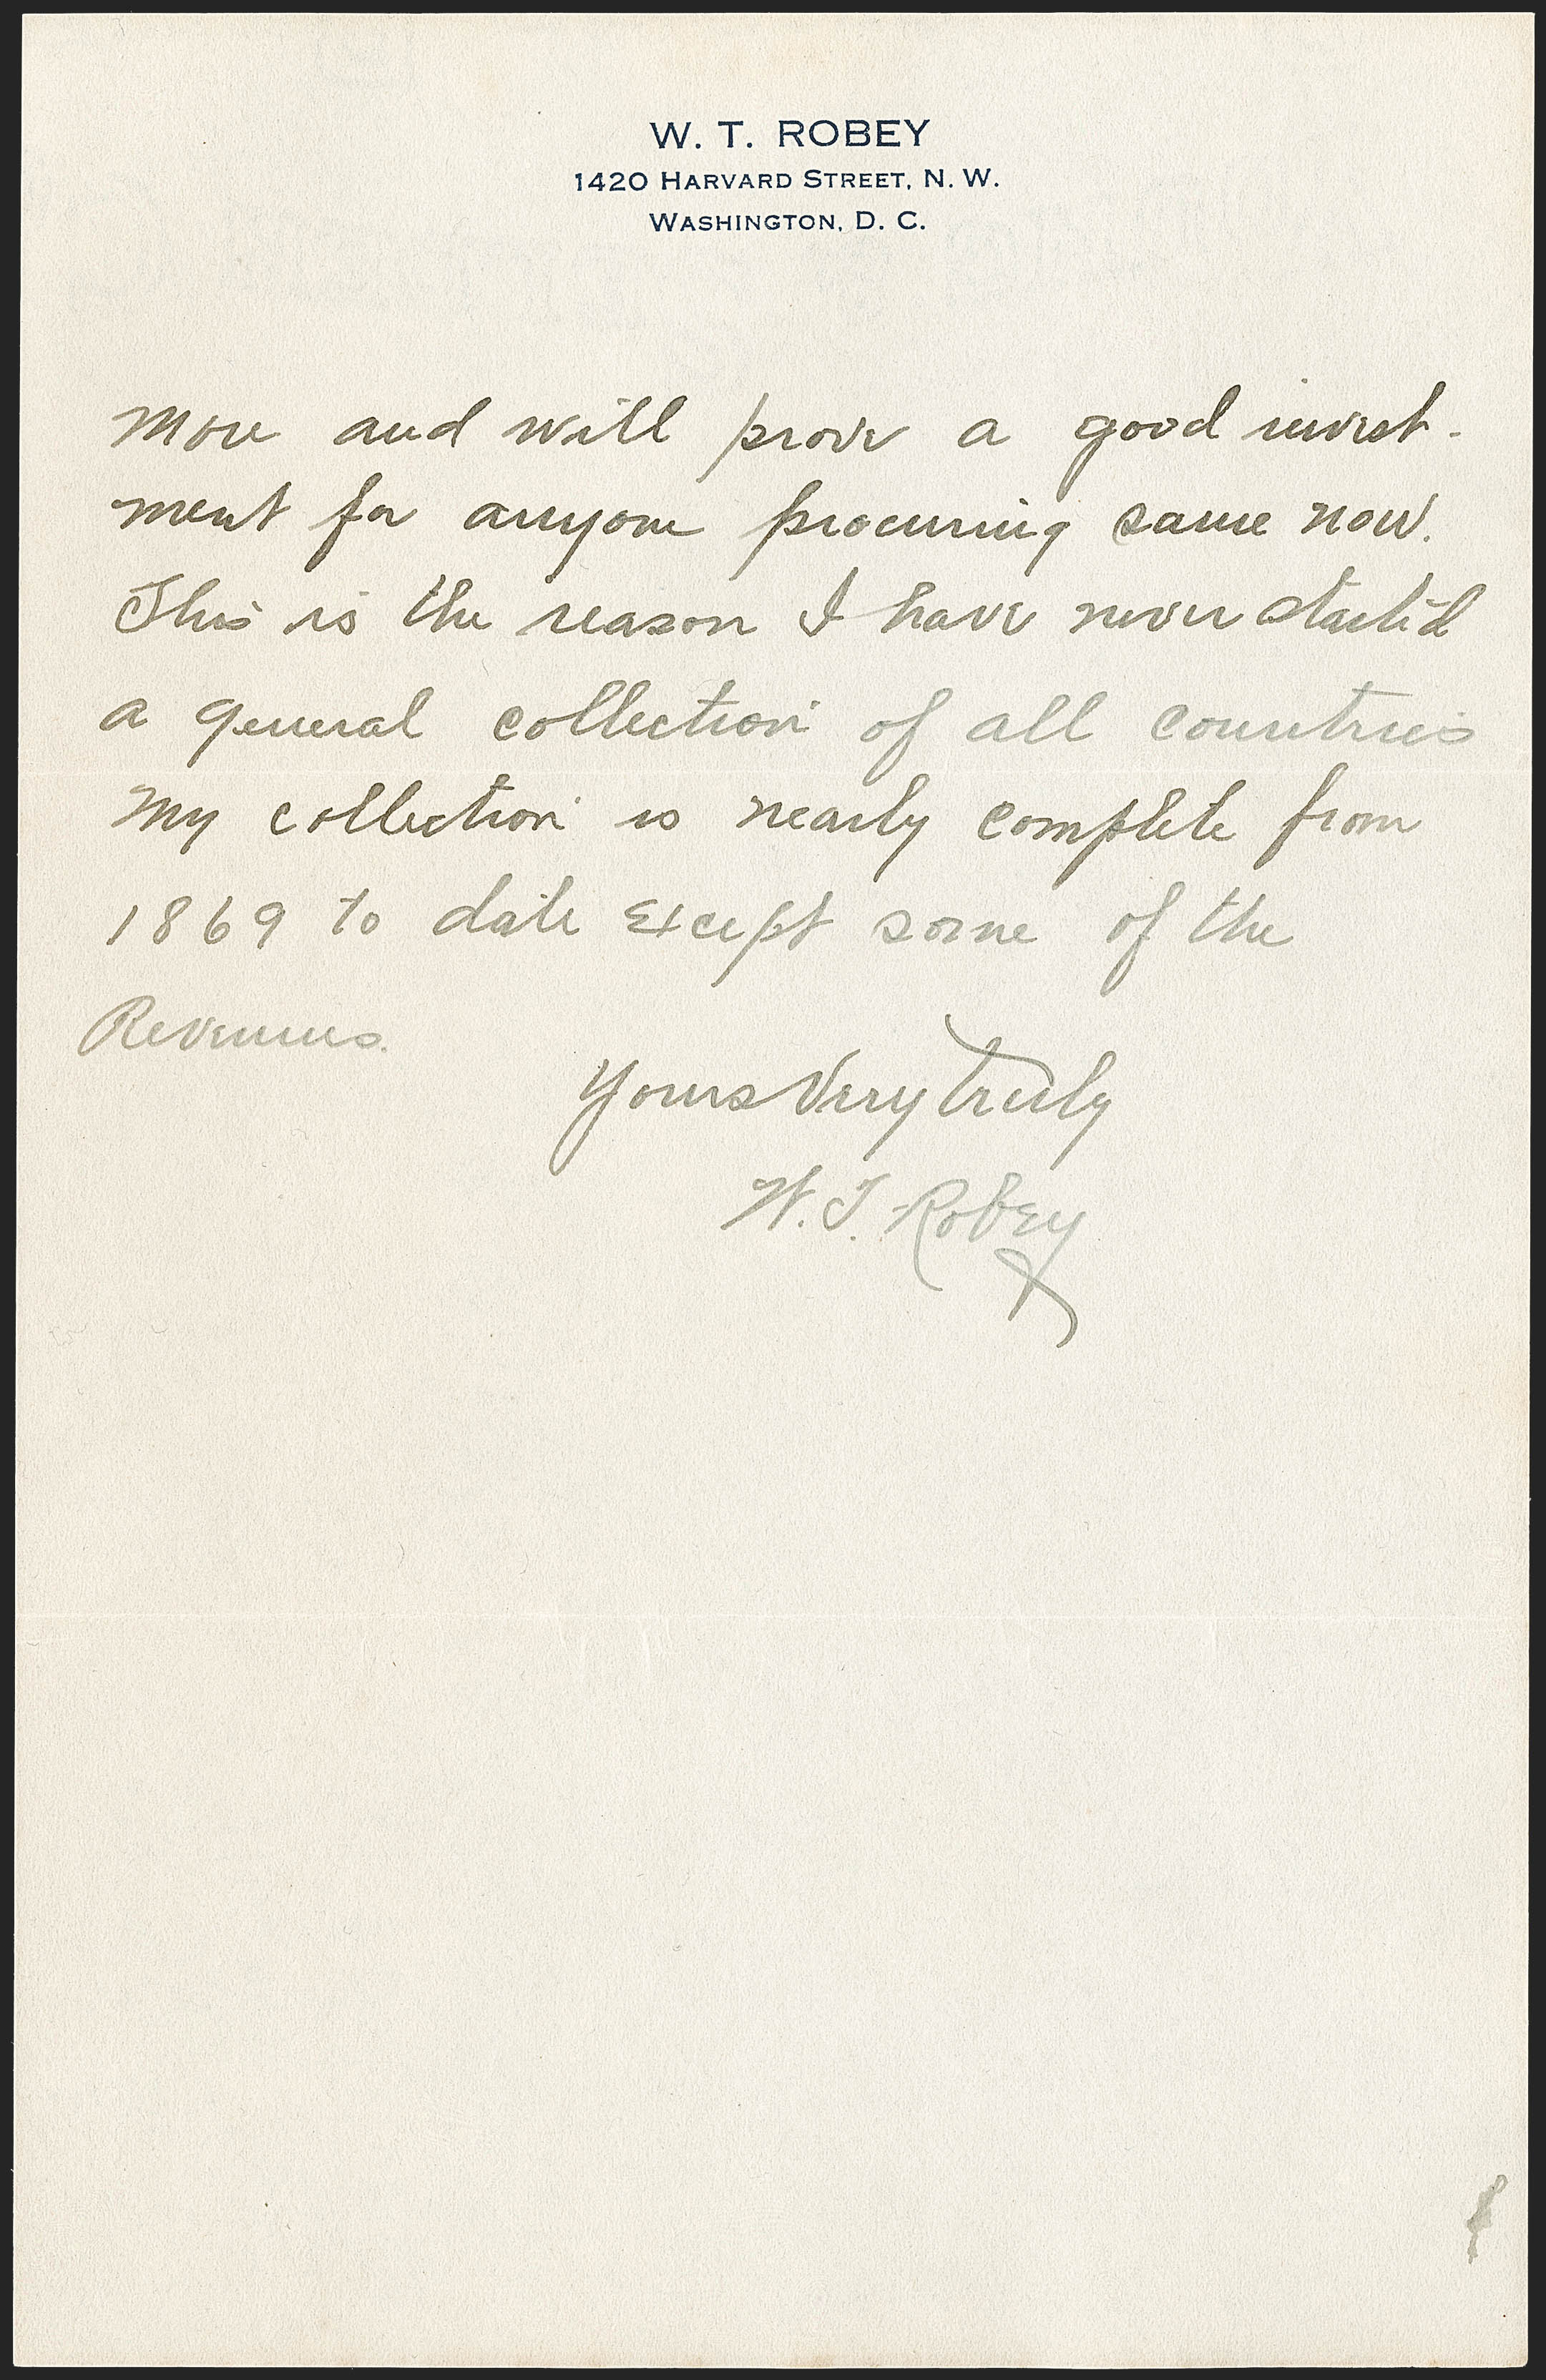 W. T. ROBEY
1420 HARVARD STREET, N. W.
WASHINGTON, D. C.
more and will prove a good invest-
ment for anyone procuring same now.
This is the reason I have never started
a general collection of all countries
My collection is nearly complete from
1869 to date except some of the
Revenues.
Yours Very truly
W. T. Robey